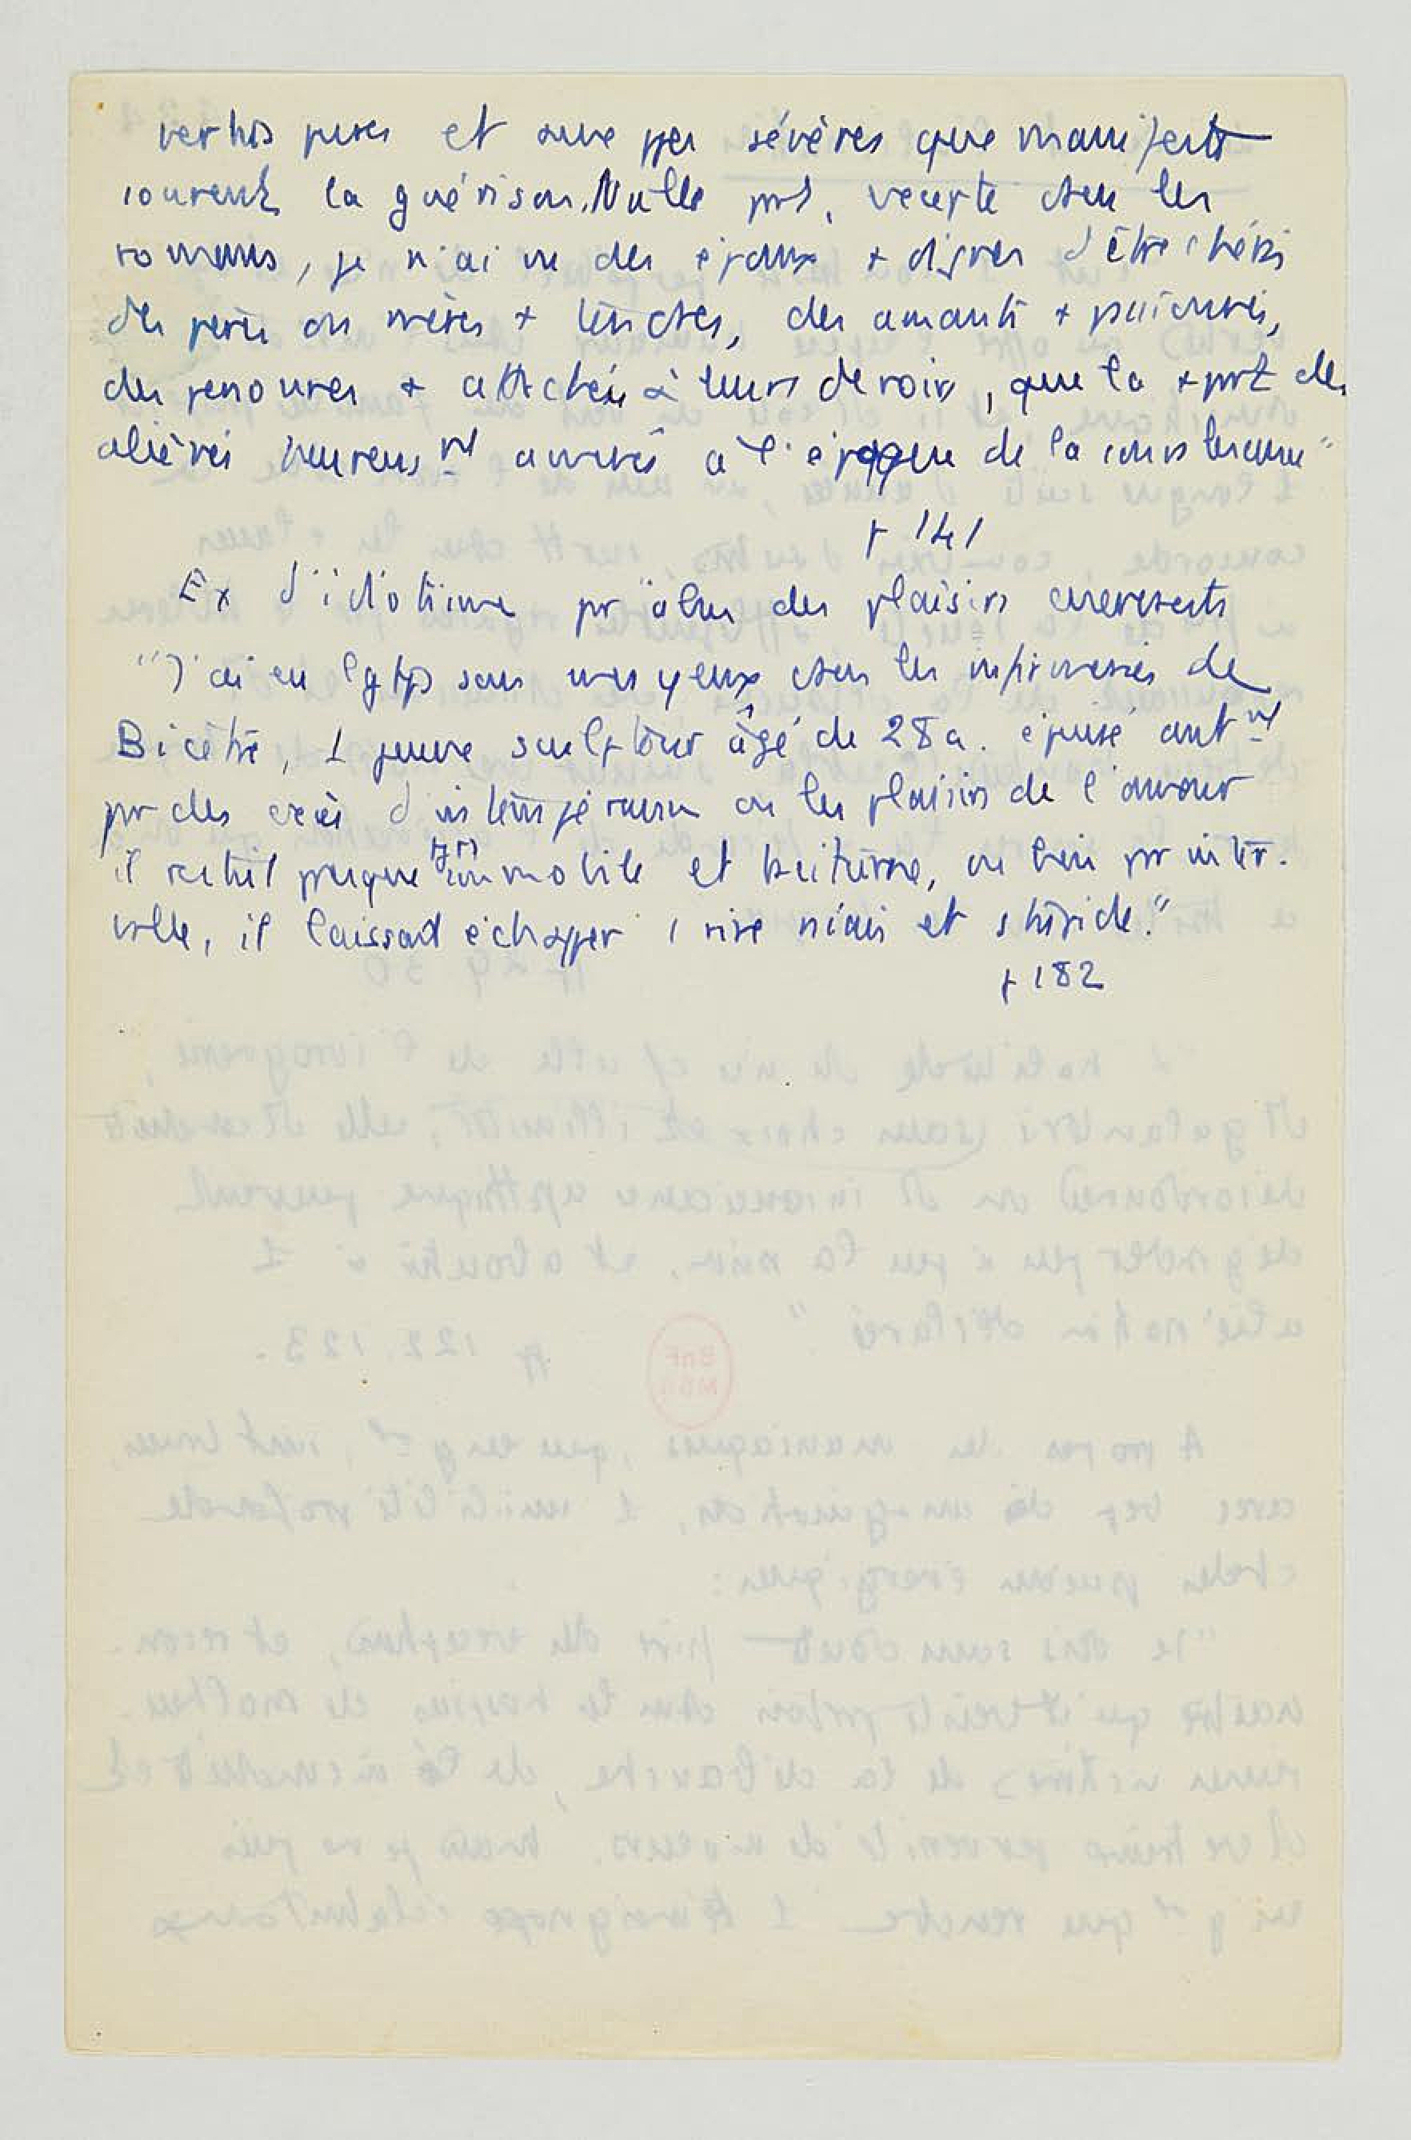 vertus pures et aux ppes sévères que manifeste
souvent la guérison. Nulle prt, excepté dans les
romans, je n'ai vu des époux + dignes d'être chéris
des pères ou mères + tendres, des amants + passionnés,
des personnes + attachées à leurs devoirs, que la + prt des
aliénés heureusnt amenés à l'époque de la convalescence"
p 141
Ex d'idiotisme pr "abus des plaisirs énervants
"J'ai eu lgtps sous mes yeux dans les infirmeries de
Bicêtre, 1 jeune sculpteur âgé de 28 a. épuisé antnt
pr des excès d'intempérance ou les plaisirs de l'amour
il restait presque tjrs immobile et taciturne, ou bien pr inter-
valle, il laissait échapper 1 rire niais et stupide."
p 182